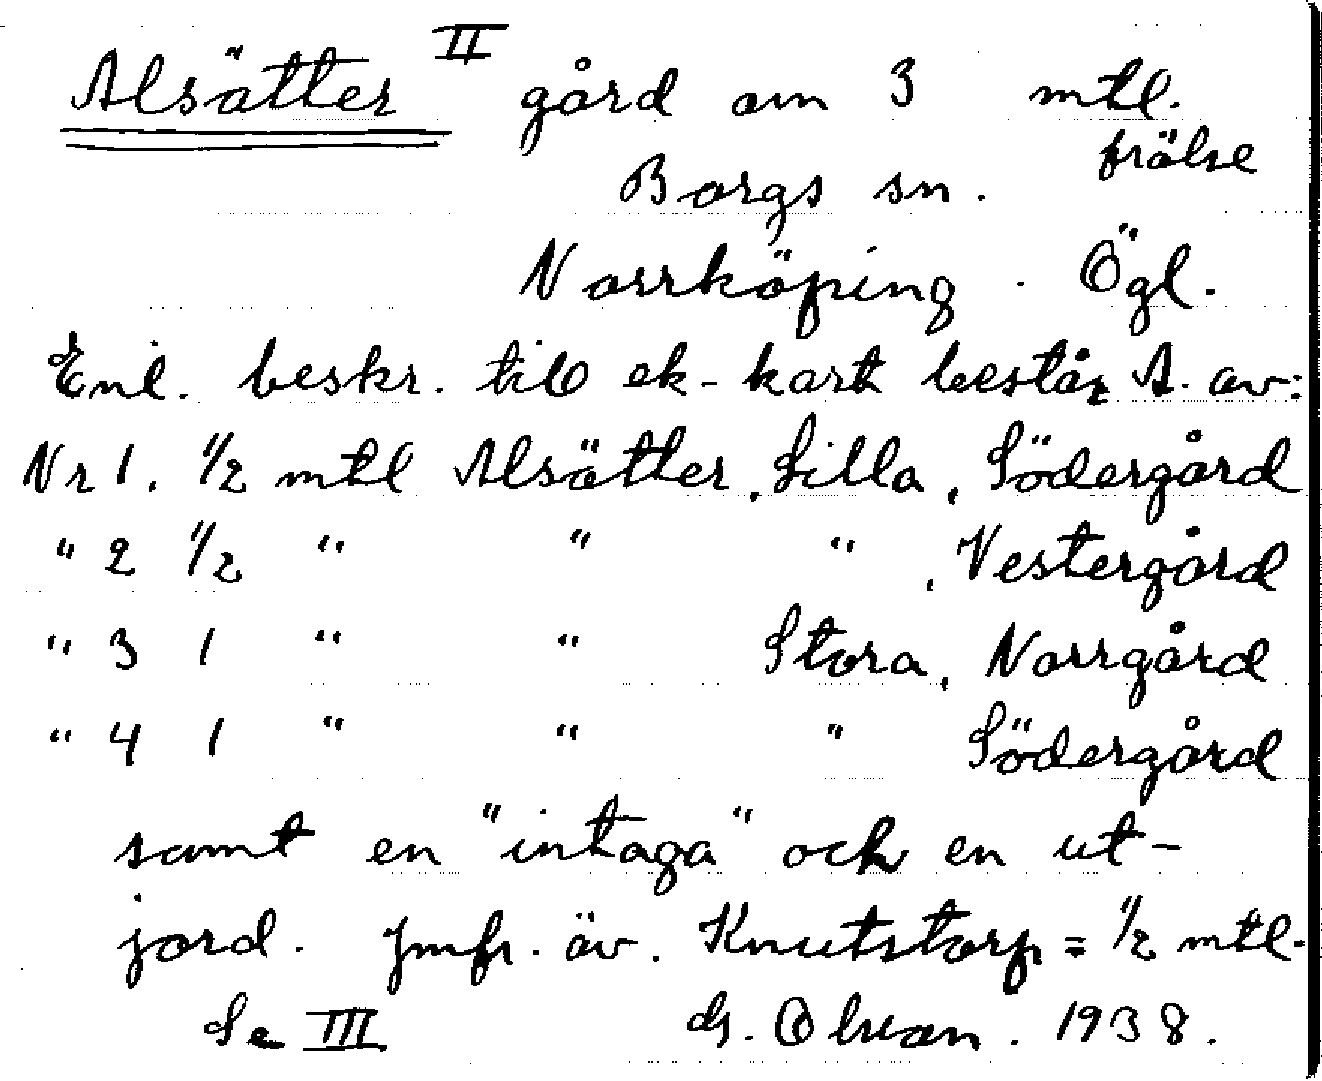 Alsätter II gård om 3 mtl.
frälse
Borgs sn.
Norrköping . Ögl.
Enl. beskr. till ek-kart består A. av:
Nr 1. 1/2 mtl Alsätter, Lilla, Södergård
" 2 1/2 " " " , Vestergård
" 3 1 " " Stora, Norrgård
" 4 1 " " " Södergård
samt en "intaga" och en ut-
jord. Jmfr. äv. Knutstorp = 1/2 mtl.
Se III G. Olsson. 1938.